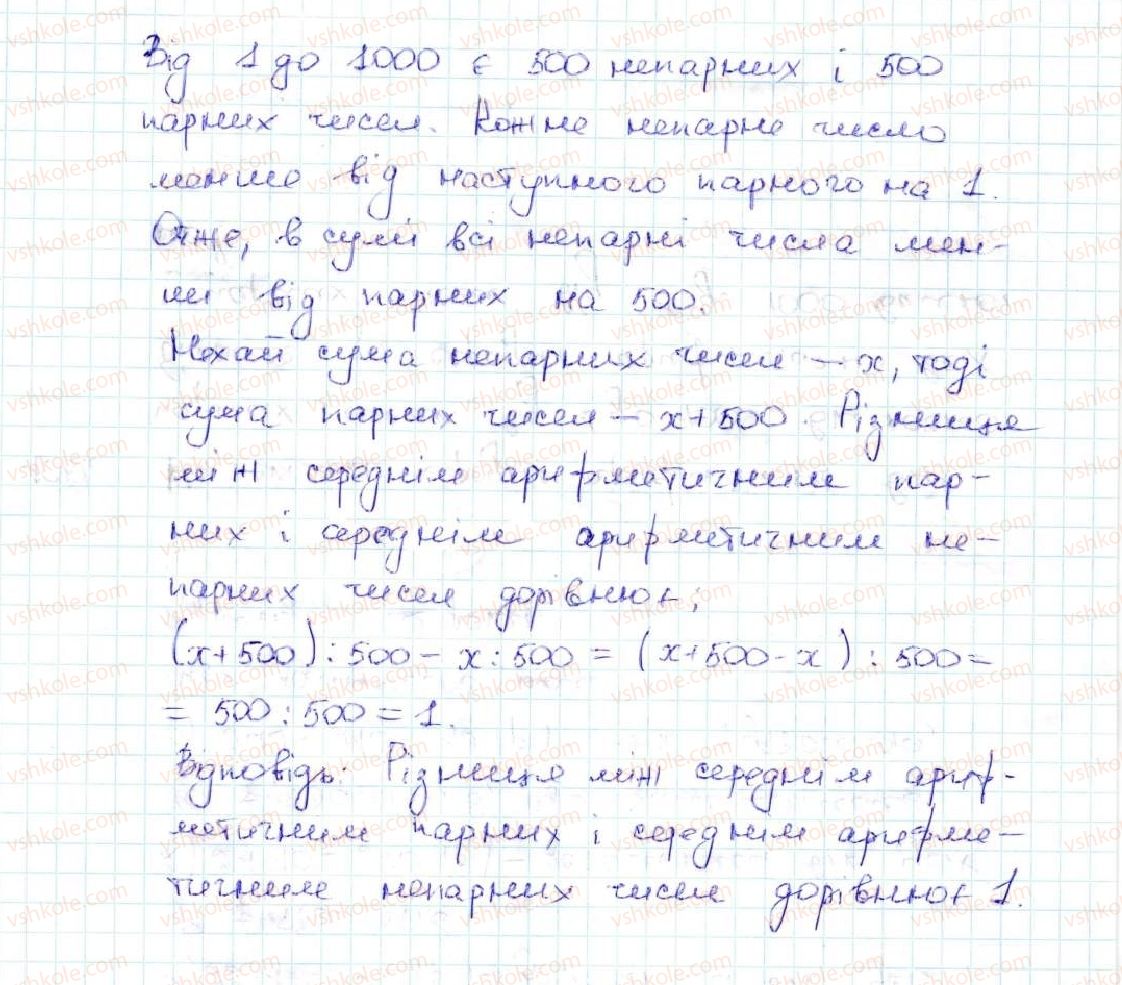 Від 1 до 1000 є 500 непарних і 500
парних чисел. Кожне непарне число
менше від наступного парного на 1.
Отже, в сумі всі непарні числа мен-
ші від парних на 500.
Нехай сума непарних чисел – x, тоді
сума парних чисел – x+500. Різниця
між середнім арифметичним пар-
них і середнім арифметичним не-
парних чисел дорівнює:
(x+500):500 – x:500 = (x+500-x):500=
= 500:500 = 1.
Відповідь: Різниця між середнім ариф-
метичним парних і середнім арифме-
тичним непарних чисел дорівнює 1.
vshkole.com